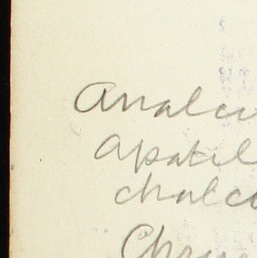 Analci
Apatil
chalco
Chryc